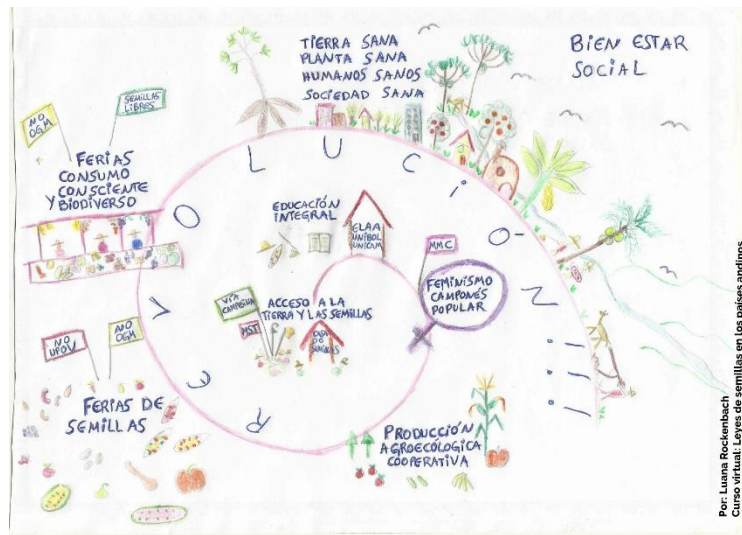 TIERRA SANA
PLANTA SANA
HUMANOS SANOS
SOCIEDAD SANA
BIEN ESTAR
SOCIAL
NO
OGM
SEMILLAS
LIBRES
FERIAS
CONSUMO
CONSCIENTE
Y BIODIVERSO
REVOLUCiÓN!!!
EDUCACIÓN
INTEGRAL
ELAA
UNIBOL
UNICAM
MMC
FEMINISMO
CAMPONÉS
POPULAR
VÍA
CAMPESINA
MST
ACCESO A LA
TIERRA Y LAS SEMILLAS
CASA
DE
SEMILLAS
NO
UPOV
NO
OGM
FERIAS DE
SEMILLAS
PRODUCCIÓN
AGROECOLOGICA
COOPERATIVA
Por: Luana Rockenbach
Curso virtual: Leyes de semillas en los países andinos